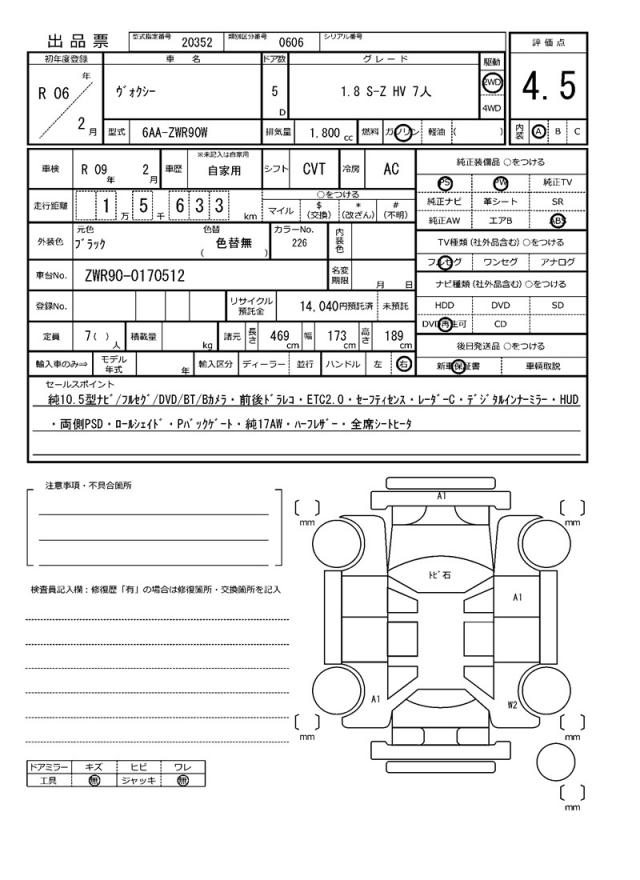 出品票 型式指定番号 20352 類別区分番号 0606 シリアル番号
評価点
初年度登録 車名 ドア数 グレード 駆動
R 06 年 2 月
ヴォクシー 5 D 1.8 S-Z HV 7人 2WD 4WD
4.5
型式 6AA-ZWR90W 排気量 1.800 cc 燃料 ガソリン 軽油 ( )
内装 A B C
車検 R 09 年 2 月 車歴 ※未記入は自家用 自家用 シフト CVT 冷房 AC
純正装備品 ○をつける
PS PW 純正TV
走行距離 1 万 5 千 6 3 3 km ○をつける マイル $(交換) *(改ざん) #(不明)
純正ナビ 革シート SR
純正AW エアB ABS
外装色 元色 ブラック 色替 色替無 ( ) カラーNo. 226 内装色
TV種類 (社外品含む) ○をつける
フルセグ ワンセグ アナログ
車台No. ZWR90-0170512 名変期限 月 日
ナビ種類 (社外品含む) ○をつける
登録No. リサイクル預託金 14,040円預託済 未預託
HDD DVD SD
DVD再生可 CD
定員 7( ) 人 積載量 kg 諸元 長さ 469 cm 幅 173 cm 高さ 189 cm
後日発送品 ○をつける
輸入車のみ⇒ モデル年式 年 輸入区分 ディーラー 並行 ハンドル 左 右
新車保証書 車輌取説
セールスポイント
純10.5型ナビ/フルセグ/DVD/BT/Bカメラ・前後ドラレコ・ETC2.0・セーフティセンス・レーダーC・デジタルインナーミラー・HUD
・両側PSD・ロールシェイド・Pバックゲート・純17AW・ハーフレザー・全席シートヒータ
注意事項・不具合箇所
A1
mm
mm
トビ石
検査員記入欄：修復歴「有」の場合は修復箇所・交換箇所を記入
A1
A1
W2
mm
mm
ドアミラー キズ ヒビ ワレ
工具 無 ジャッキ 無
mm